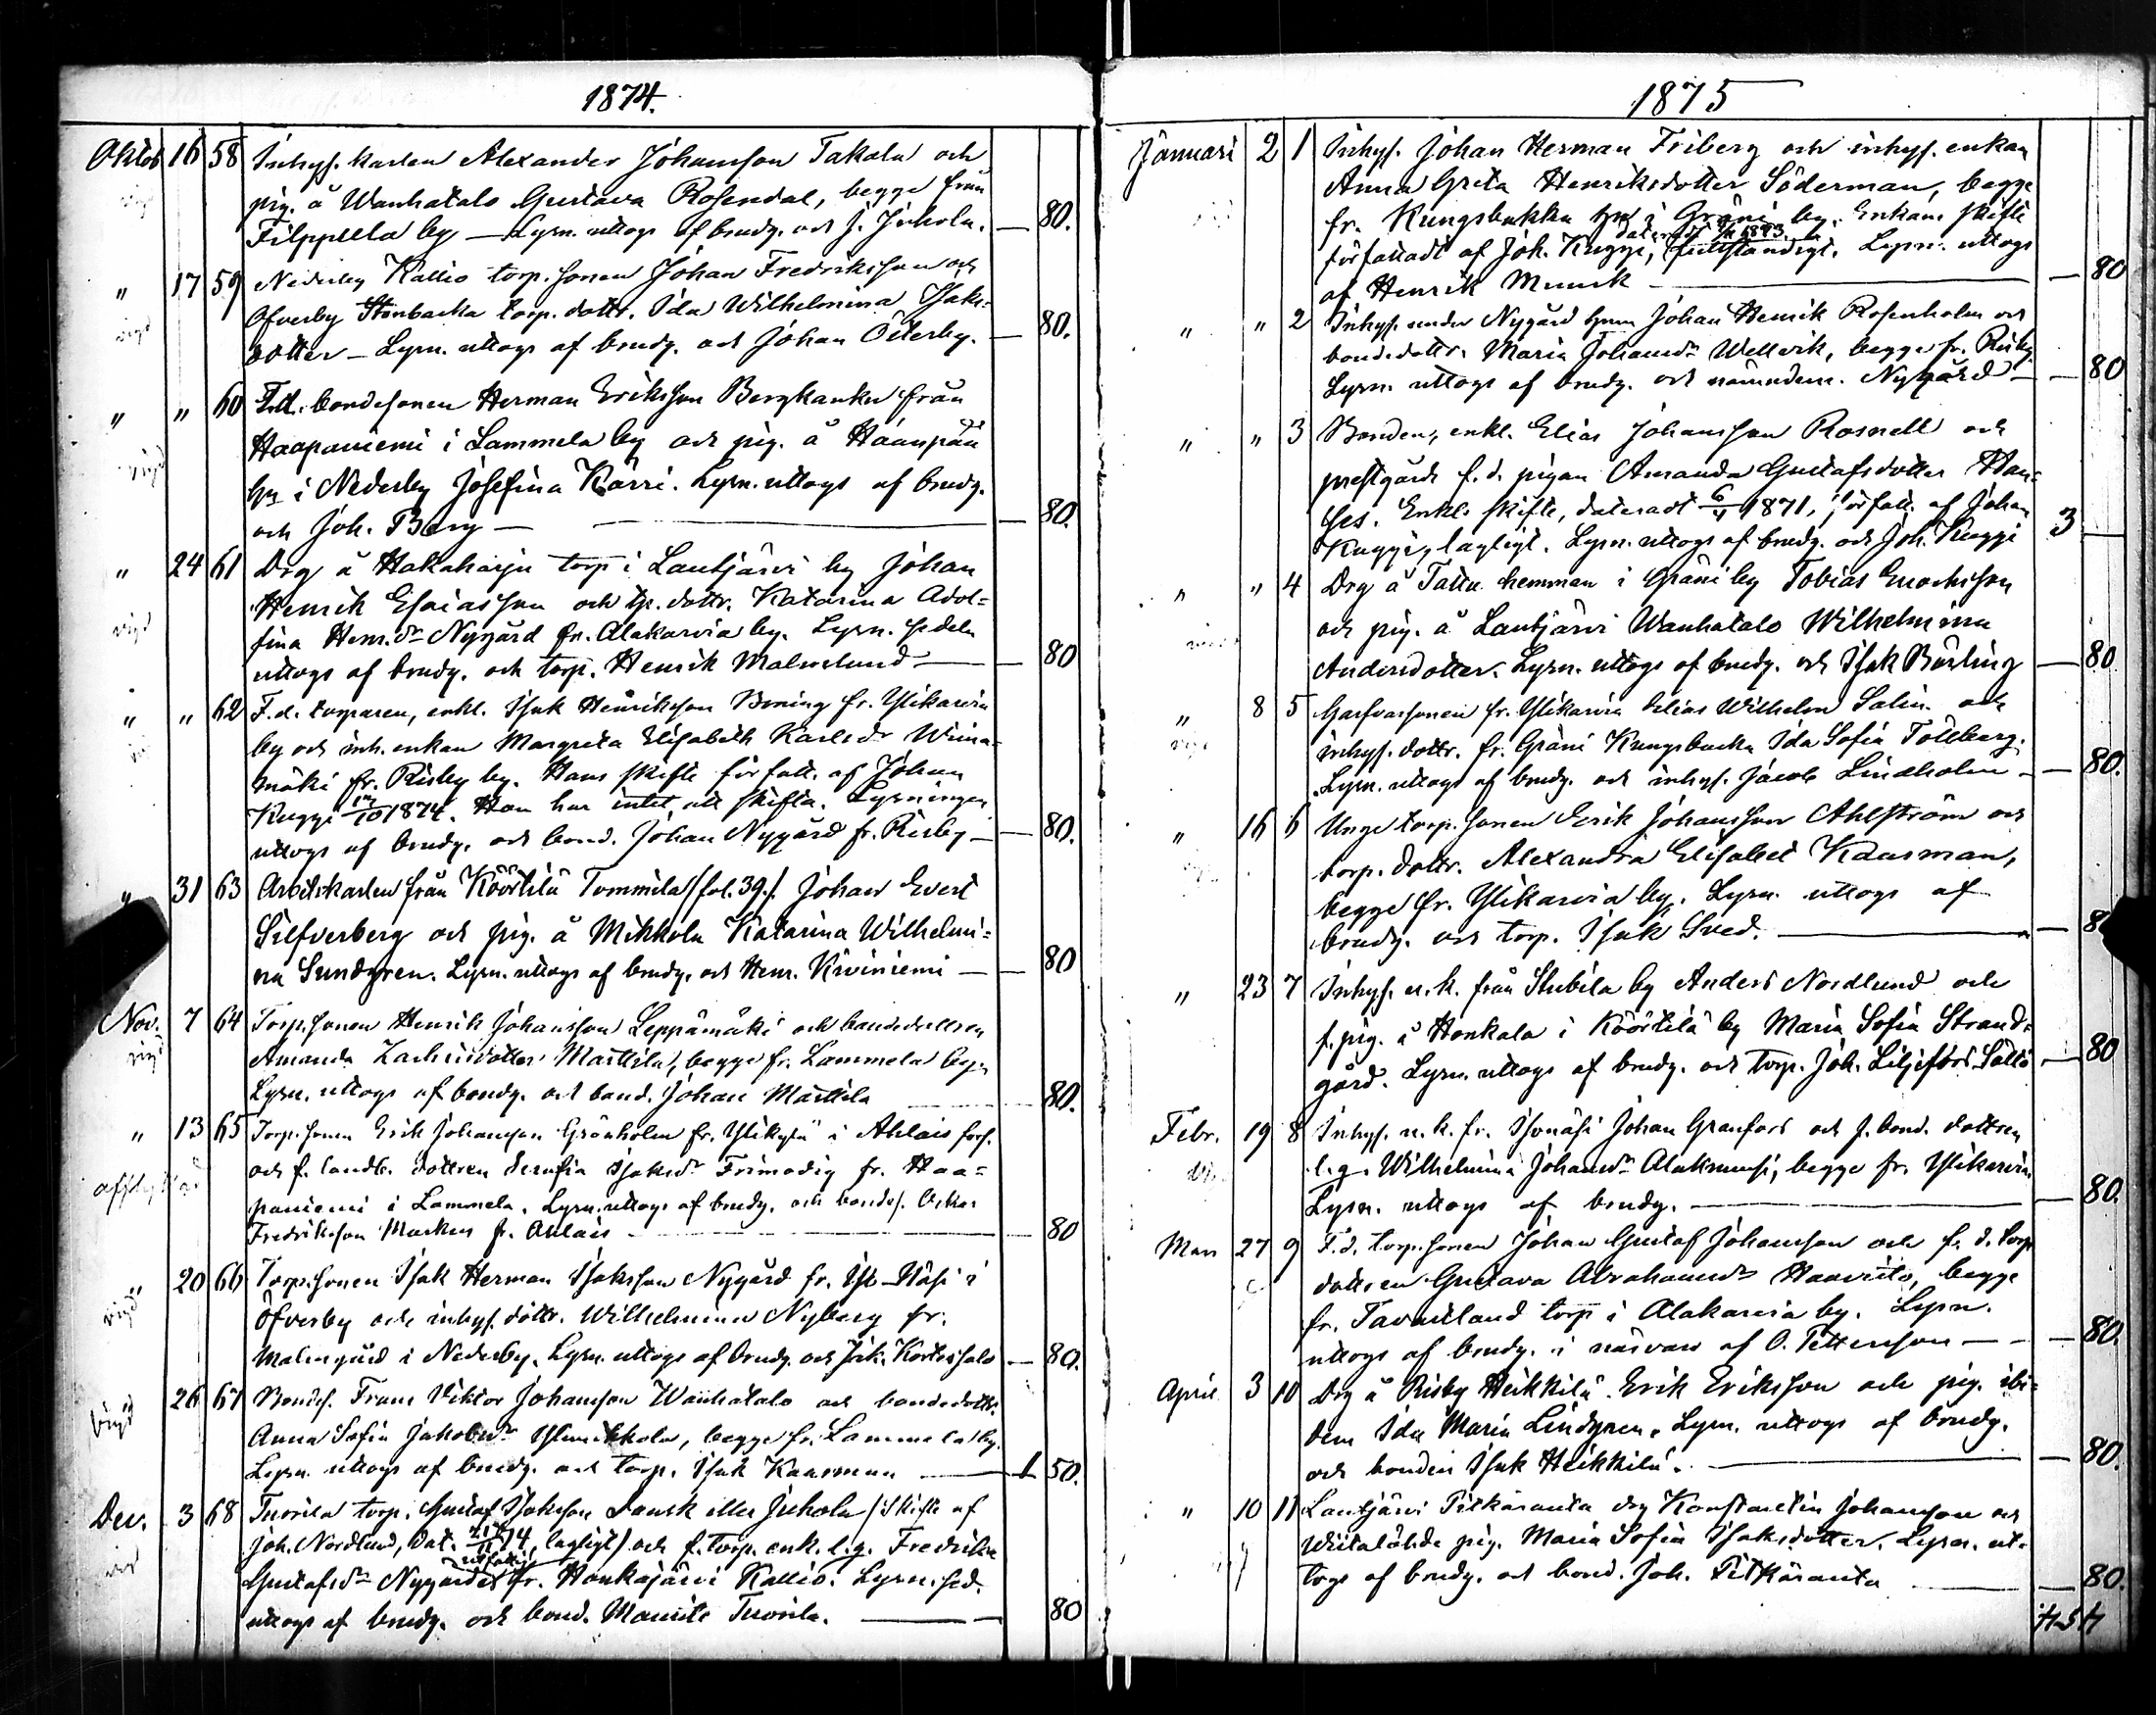 1874.
Oktob 16 58 Inhys. karlen Alexander Johansson Takala och
pig. å Wanhatalo Gustava Rosendal, begge från
Filppula by — Lysn. uttogs af brudg. och J. Juhola. — 80.
" 17 59 Nederby Kallio torp. sonen Johan Fredriksson och
Öfverby Stenbacka torp. dottr. Ida Wilhelmina Isaks-
dotter — Lysn. uttogs af brudg. och Johan Österby. — 80.
" " 60 F.d. bondesonen Herman Eriksson Bergkanku från
Haapaniemi i Lammela by och pig. å Haanpää
hn i Nederby Josefina Kärri. Lysn. uttogs af brudg.
och Joh. Berg — 80.
" 24 61 Drg å Hakaharju torp i Lautjärvi by Johan
vigd Henrik Esaiasson och tp. dottr. Katarina Adol-
fina Henr.dr Nygård fr. Alakarvia by. Lysn. sedeln
uttogs af brudg. och torp. Henrik Malmlund — 80
" " 62 F.d. torparen, enkl. Isak Henriksson Boning fr. Ylikarvia
by och inh. enkan Margreta Elisabeth Karlsdr Wiina-
mäki fr. Risby by. Hans skifte författ. af Johan
Kuggi /10 1874. Hon har intet att skifta. Lysningen
uttogs af brudg. och bond. Johan Nygård fr. Risby — 80.
" 31 63 Arbetskarlen från Köörtilä Tommila /fol. 39./ Johan Evert
Silfverberg och pig. å Mikkola Katarina Wilhelmi-
na Sundgren. Lysn. uttogs af brudg. och Henr. Kiviniemi — 80
Nov. 7 64 Torp. sonen Henrik Johansson Leppämäki och bondedottren
vigd Amanda Zachrisdotter Marttila, begge fr. Lammela by.
Lysn. uttogs af brudg. och bond. Johan Marttila 80.
" 13 65 Torp. sonen Erik Johansson Grönholm fr. Ylikylä i Ahlais förs.
och f. landb. dottren Serafia Isaksdr Frimodig fr. Haa-
paniemi i Lammela. Lysn. uttogs af brudg. och bondes. Oskar
Fredriksson Markus fr. Ahlais — 80
" 20 66 Torp. sonen Isak Herman Isaksson Nygård fr. Iso-Häsi i
vigd Öfverby och inhys. dottr. Wilhelmina Nyberg fr.
Malmgård i Nederby. Lysn. uttogs af brudg. och Joh. Kortessalo — 80.
vigd 26 67 Bondes. Frans Viktor Johansson Wanhatalo och bondedottr.
Anna Sofia Jakobsdr Ylimikkola, begge fr. Lammela by.
Lysn. uttogs af brudg. och torp. Isak Kaasman — 1 50.
Dec. 3 68 Tuorila torp. Gustaf Isaksson Dansk eller Juhola /Skifte af
Joh. Nordlund, dat. 21/11 74, lagligt/ och f. torp. enk. l.g. Fredrika
utfattig
Gustafsdr Nygård fr. Honkajärvi Kallio. Lysn. sed.
uttogs af brudg. och bond. Maurits Tuorila. — 80
1875
Januari 2 1 Inhys. Johan Herman Friberg och inhys. enkan
Anna Greta Henriksdotter Söderman, begge
fr. Kungsbakka hn i Gräni by. Enkans skifte
daterad 1873
författadt af Joh. Kuggi, fullständigt. Lysn. uttogs
af Henrik Munck — 80
" " 2 Inhys. under Nygård hmn Johan Henrik Rosenholm och
bondedottr. Maria Johansdr Wellvik, begge fr. Risby
Lysn. uttogs af brudg. och nämndem. Nygård — 80
" " 3 Bonden, enkl. Elias Johansson Rosnell och
prestgårds f.d. pigan Amanda Gustafsdotter Han-
ses. Enkl. skifte, dateradt 6/4 1871, författ. af Johan
Kuggi, lagligt. Lysn. uttogs af brudg. och Joh. Kuggi 3 —
" " 4 Drg å Tattu hemman i Gräni by Tobias Enochsson
och pig. å Lautjärvi Wanhatalo Wilhelmina
Andersdotter. Lysn. uttogs af brudg. och Isak Bärling — 80
" 8 5 Garfvarsonen fr. Ylikarvia Elias Wilhelm Salin och
inhys. dottr. fr. Gräni Kungsbacka Ida Sofia Tollberg.
Lysn. uttogs af brudg. och inhys. Jacob Lindholm — 80.
" 16 6 Unge torp. sonen Erik Johansson Ahlström och
torp. dottr. Alexandra Elisabet Kaasman,
begge fr. Ylikarvia by. Lysn. uttogs af
brudg. och torp. Isak Sved. — 8
" 23 7 Inhys. u.k. från Stubila by Anders Nordlund och
f. pig. å Honkala i Köörtilä by Maria Sofia Strand-
gård. Lysn. uttogs af brudg. och torp. Joh. Liljefors — 80
Febr. 19 8 Inhys. u.k. fr. Isonäsi Johan Granfors och f. bond. dottren
l.g. Wilhelmina Johansdr Alakruusi, begge fr. Ylikarvia
Lysn. uttogs af brudg. — 80.
Mars 27 9 F.d. torp. sonen Johan Gustaf Johansson och f.d. torp
dottren Gustava Abrahamsdr Haavisto, begge
fr. Tavastland torp i Alakarvia by. Lysn.
uttogs af brudg. i närvaro af O. Pettersson — 80.
April 3 10 Drg å Risby Heikkilä Erik Eriksson och pig. ibi-
dem Ida Maria Lindgren. Lysn. uttogs af brudg.
och bonden Isak Heikkilä. — 80.
" 10 11 Lautjärvi Pitkäranta drg Konstantin Johansson och
pig. Maria Sofia Isaksdotter. Lysn. ut-
togs af brudg. och bond. Joh. Pitkäranta — 80.